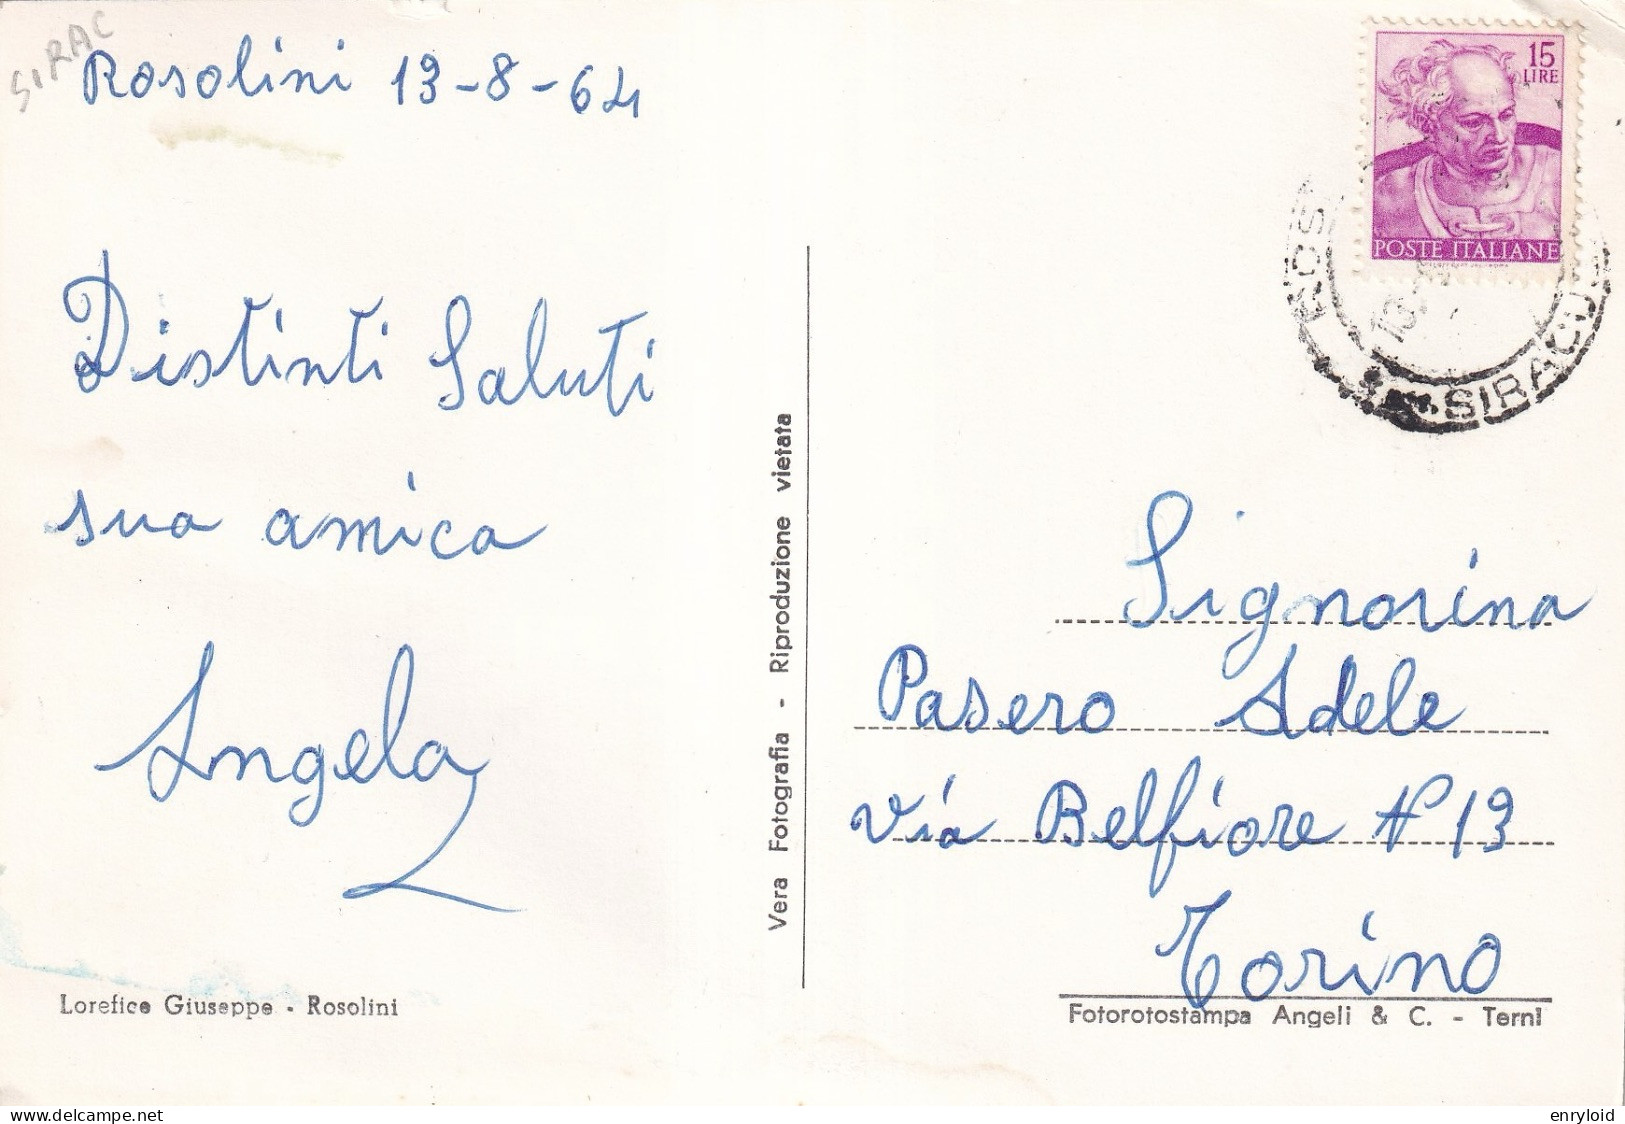 SIRAC
Rosolini 13-8-64
Distinti Saluti
sua amica
Angela
Lorefice Giuseppe - Rosolini
Vera Fotografia - Riproduzione vietata
15
LIRE
POSTE ITALIANE
SIRACU
Signorina
Pasero Adele
Via Belfiore N° 13
Torino
Fotorotostampa Angeli & C. - Terni
enryloid
delcampe.net